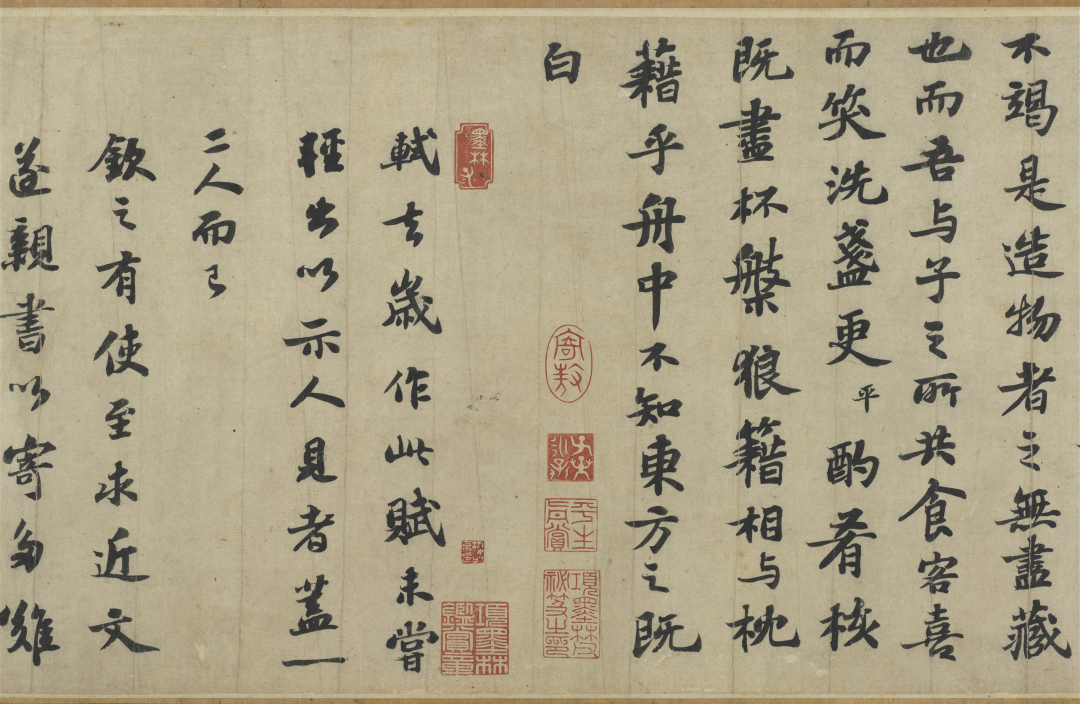 不竭是造物者之無盡藏
也而吾与子之所共食客喜
而笑洗盞更平酌肴核
既盡杯槃狼籍相与枕
藉乎舟中不知東方之既
白
軾去歲作此賦未嘗
輕出以示人見者蓋一
二人而已
欽之有使至求近文
遂親書以寄多難
墨林
寄敖
平生真賞
項墨林鑑賞章